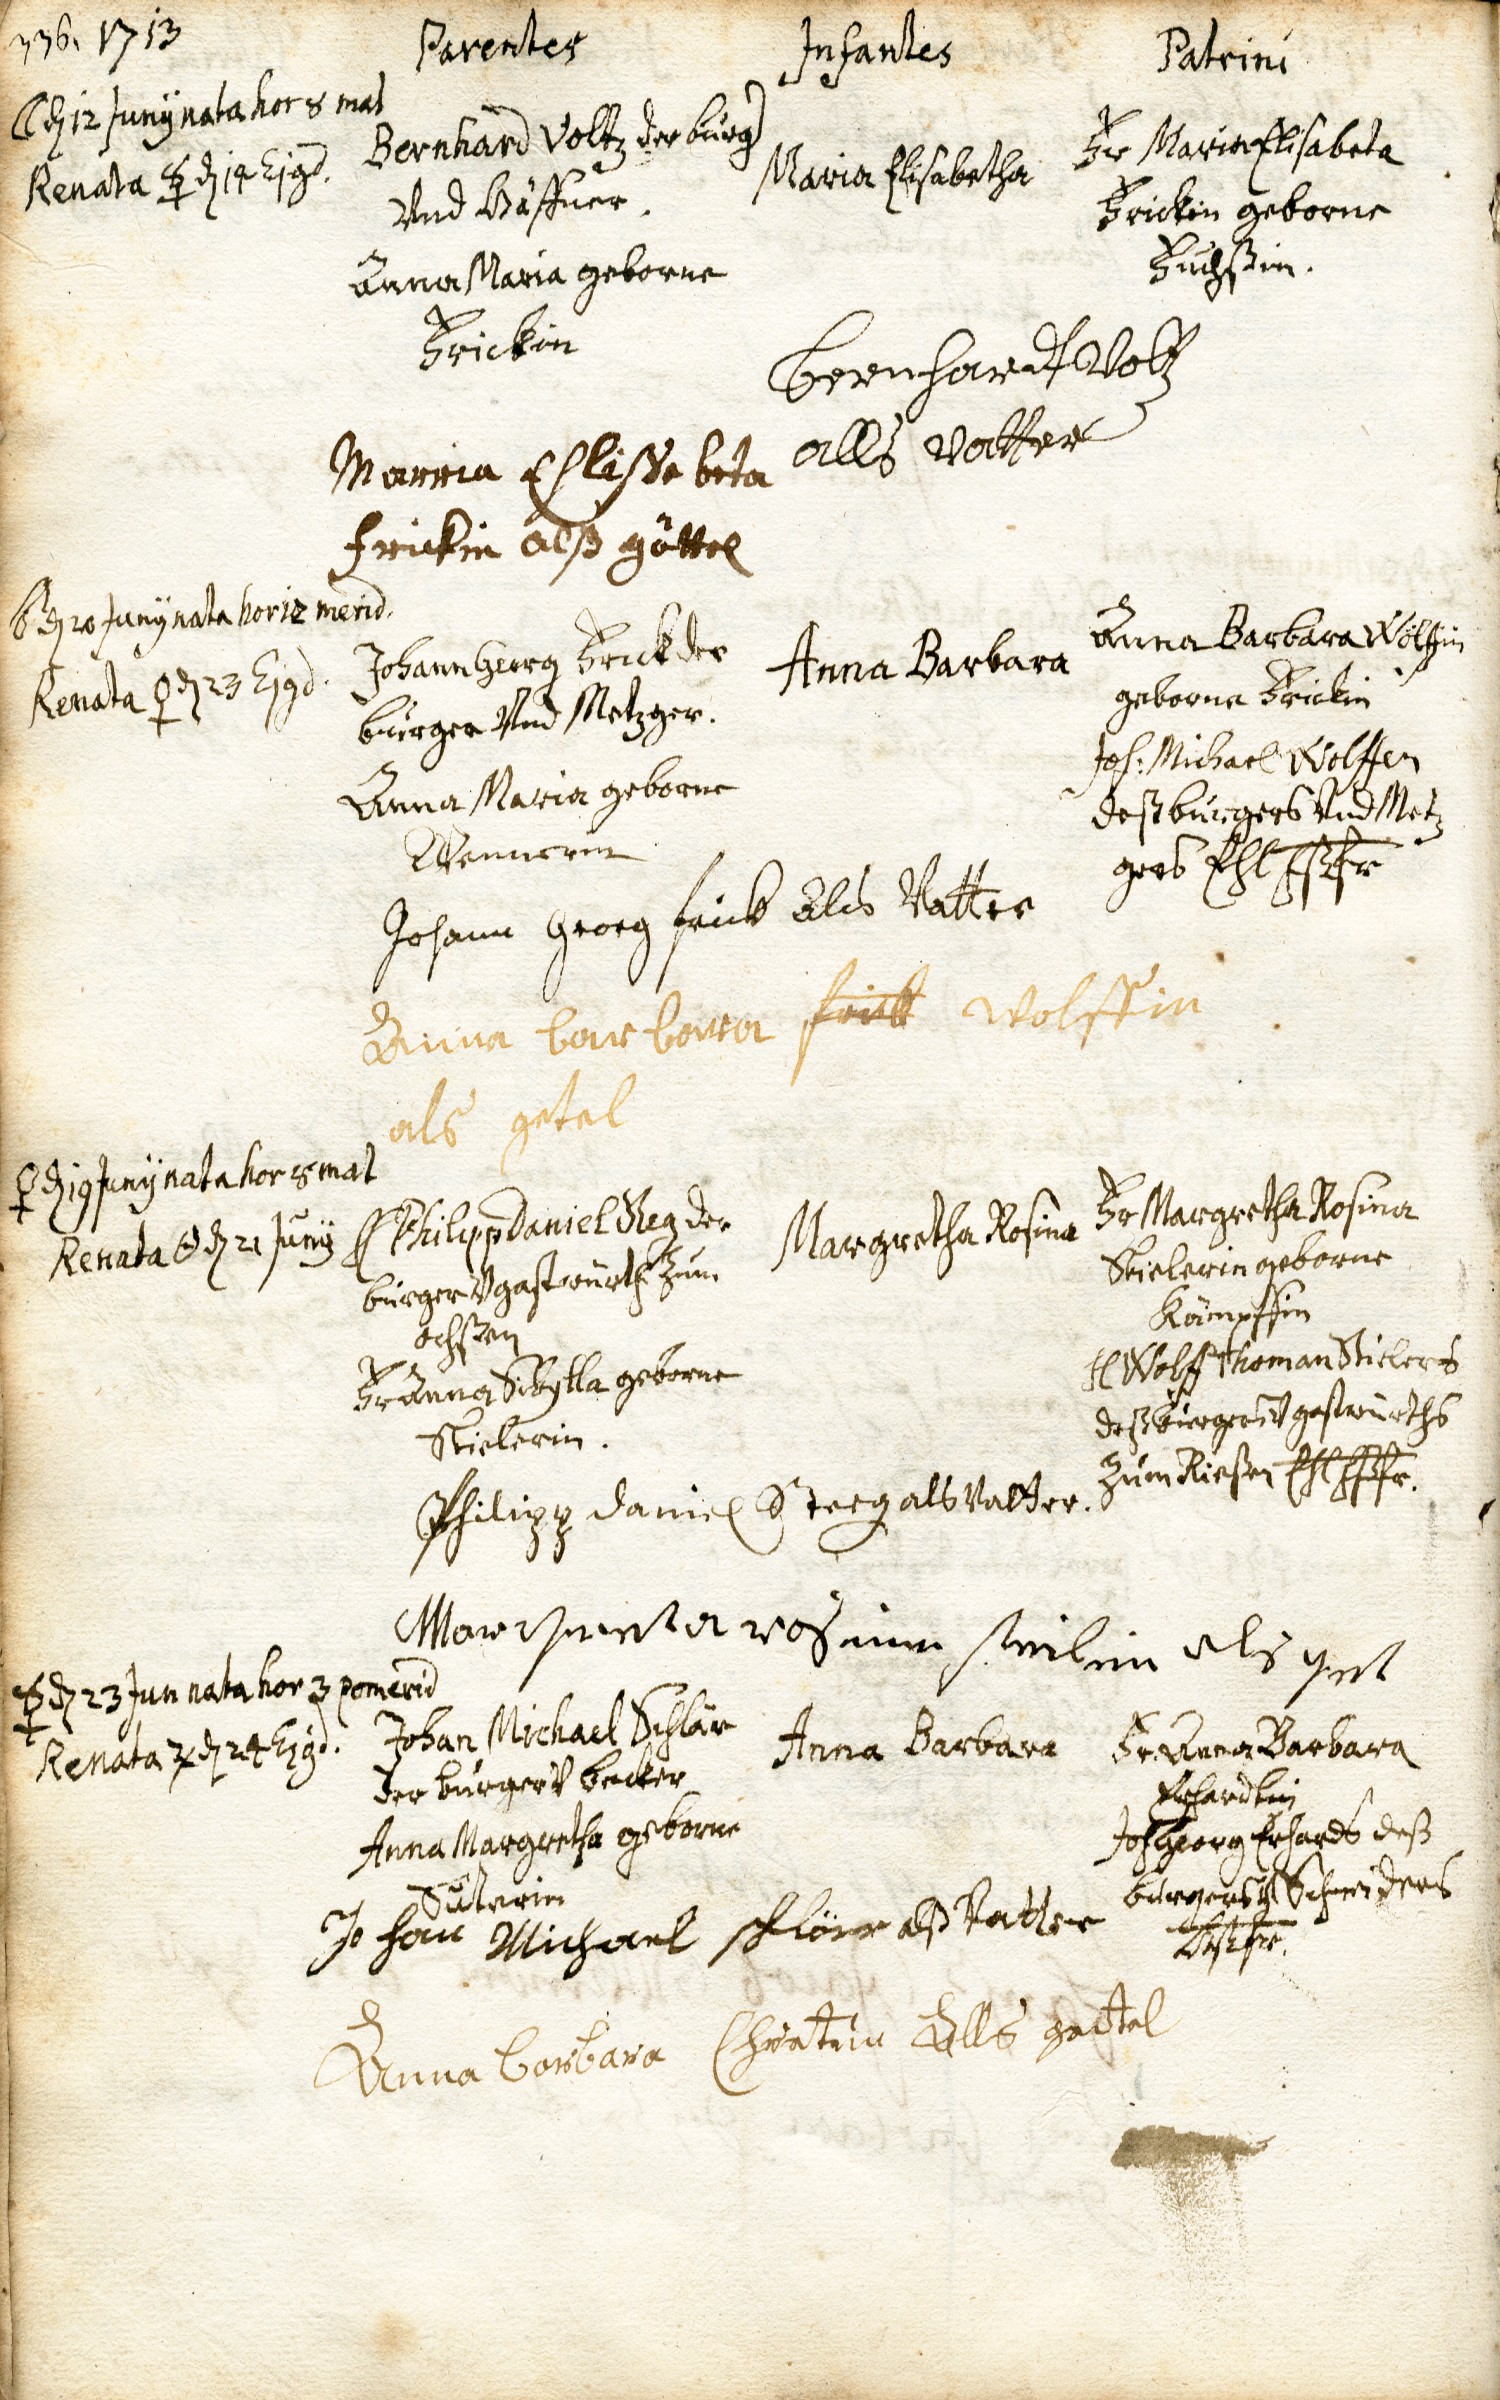 336. 1713
Parentes
Infantes
Patrini
☾ d 12 Junij nata hor 8 mat
Renata ☿ d 14 Ejqd.
Bernhard Voltz der burg
Und Häffner.
Anna Maria geborne
Frickin
Maria Elisabetha
Fr Maria Elisabeta
Frickin geborne
Fuchßin.
bernhardt Voltz
alls vatter
Marria Ehlissebeta
frickin alß göttel
d 20 Junij nata hor 12 merid.
Renata ♀ d 23 Ejqd.
Johann Georg Frick der
burger Und Metzger.
Anna Maria geborne
Anna Barbara
Anna Barbara Wölffin
geborne Frickin
Joh: Michael Wolffen
deß burgers Und Metz
gers Ehl
Johann Georg frick Als Vatter
Anna barbara frick wolffin
als getel
♀ d 19 Junij nata hor 8 mat
Renata d 21 Junij
H Philipp Daniel Steg der
burger V gastwürth Zum
ochßen
Fr Anna Sibylla geborne
Stielerin.
Margretha Rosina
Fr Margretha Rosina
Stielerin geborne
Kämpffin
H Wolff Thoman Stielers
deß burgers V gastwürths
Zum Rießen Ehl
Philipp daniel Steeg als Vatter.
Margreta rosina stielin als get
☿ d 23 Jun nata hor 3 pomerid
Renata ♃ d 24 Ejqd.
Johan Michael Schlär
der burger V becker
Anna Margretha geborne
Suterin
Anna Barbara
Fr Anna Barbara
Erhardtin
Joh Georg Erhards deß
burgers V Schneiders
Johan Michael schlörr alß Vatter
Anna barbara Ehratin Alls gettel